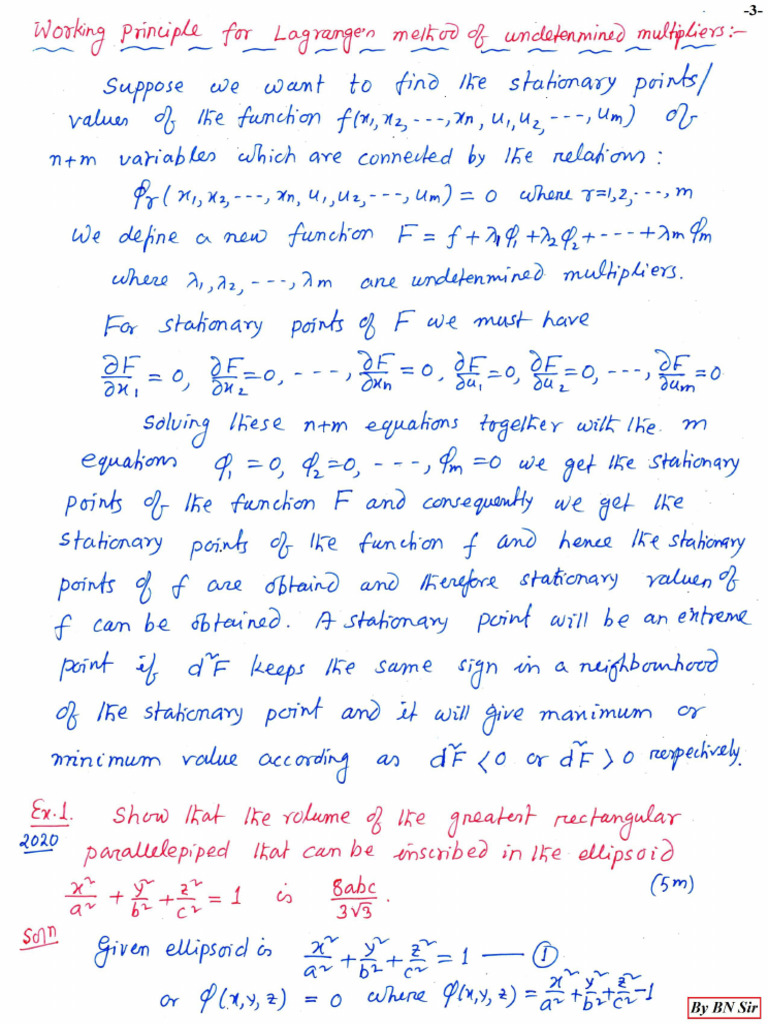 -3-
Working Principle for Lagrange's method of undetermined multipliers:-
Suppose we want to find the stationary points/
values of the function f(x₁, x₂, ---, xₙ, u₁, u₂, ---, uₘ) of
n+m variables which are connected by the relations:
φᵣ(x₁, x₂, ---, xₙ, u₁, u₂, ---, uₘ) = 0 where r=1,2, ---, m
We define a new function F = f + λ₁φ₁ + λ₂φ₂ + ---- + λₘφₘ
where λ₁, λ₂, ---, λₘ are undetermined multipliers.
For stationary points of F we must have
∂F/∂x₁ = 0, ∂F/∂x₂ = 0, ---, ∂F/∂xₙ = 0, ∂F/∂u₁ = 0, ∂F/∂u₂ = 0, ---, ∂F/∂uₘ = 0
Solving these n+m equations together with the m
equations φ₁ = 0, φ₂ = 0, ---, φₘ = 0 we get the stationary
points of the function F and consequently we get the
stationary points of the function f and hence the stationary
points of f are obtaind and therefore stationary values of
f can be obtained. A stationary point will be an extreme
point if d²F keeps the same sign in a neighbourhood
of the stationary point and it will give maximum or
minimum value according as d²F < 0 or d²F > 0 respectively.
Ex.1. Show that the volume of the greatest rectangular
2020 parallelepiped that can be inscribed in the ellipsoid
x²/a² + y²/b² + z²/c² = 1 is 8abc/3√3. (5m)
Soln Given ellipsoid is x²/a² + y²/b² + z²/c² = 1 — ①
or φ(x,y,z) = 0 where φ(x,y,z) = x²/a² + y²/b² + z²/c² - 1
By BN Sir